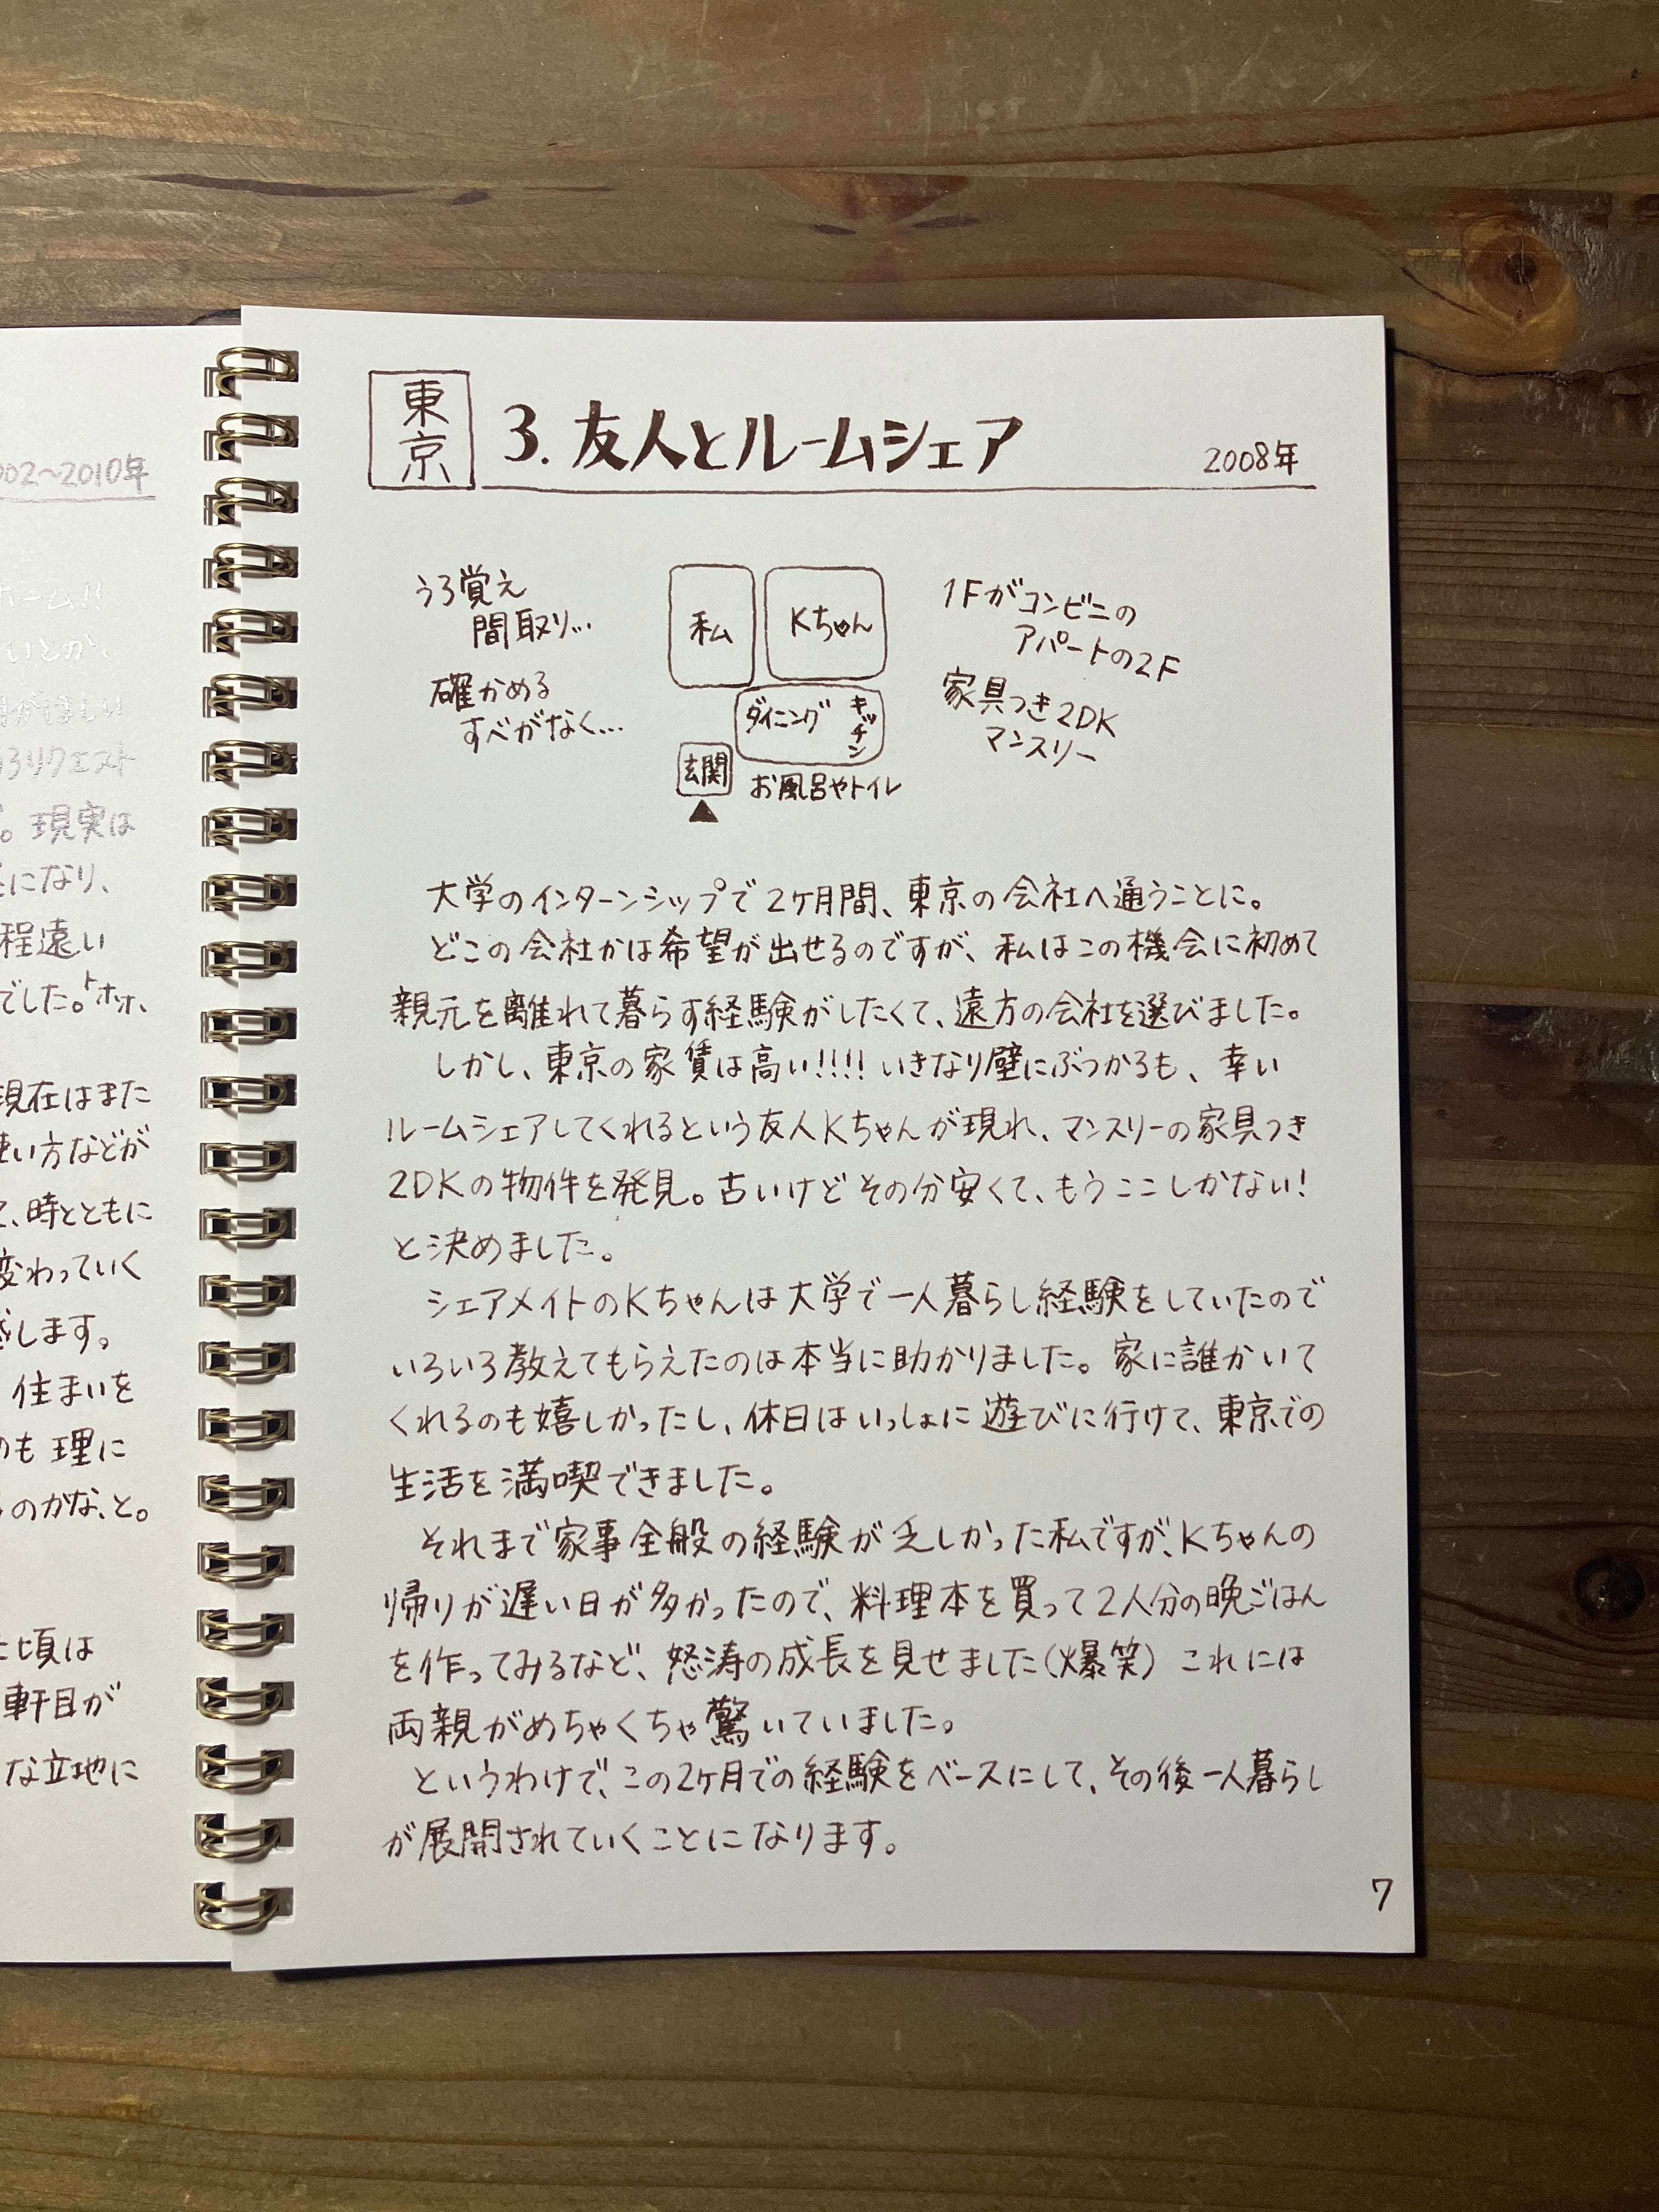 002〜2010年
ホーム!!
いとか、
がほしい
リクエスト
。現実は
になり、
程遠い
でした。トホホ、
現在はまた
使い方などが
て、時とともに
変わっていく
感します。
住まいを
のも理に
のかな、と。
た頃は
軒目が
な立地に
東京
3. 友人とルームシェア
2008年
うろ覚え
間取り…
確かめる
すべがなく…
私
Kちゃん
ダイニング
キッチン
玄関
お風呂やトイレ
1Fがコンビニの
アパートの2F
家具つき2DK
マンスリー
大学のインターンシップで2ヶ月間、東京の会社へ通うことに。
どこの会社かは希望が出せるのですが、私はこの機会に初めて
親元を離れて暮らす経験がしたくて、遠方の会社を選びました。
しかし、東京の家賃は高い!!!! いきなり壁にぶつかるも、幸い
ルームシェアしてくれるという友人Kちゃんが現れ、マンスリーの家具つき
2DKの物件を発見。古いけどその分安くて、もうここしかない!
と決めました。
シェアメイトのKちゃんは大学で一人暮らし経験をしていたので
いろいろ教えてもらえたのは本当に助かりました。家に誰かいて
くれるのも嬉しかったし、休日はいっしょに遊びに行けて、東京での
生活を満喫できました。
それまで家事全般の経験が乏しかった私ですが、Kちゃんの
帰りが遅い日が多かったので、料理本を買って2人分の晩ごはん
を作ってみるなど、怒涛の成長を見せました(爆笑) これには
両親がめちゃくちゃ驚いていました。
というわけで、この2ヶ月での経験をベースにして、その後一人暮らし
が展開されていくことになります。
7